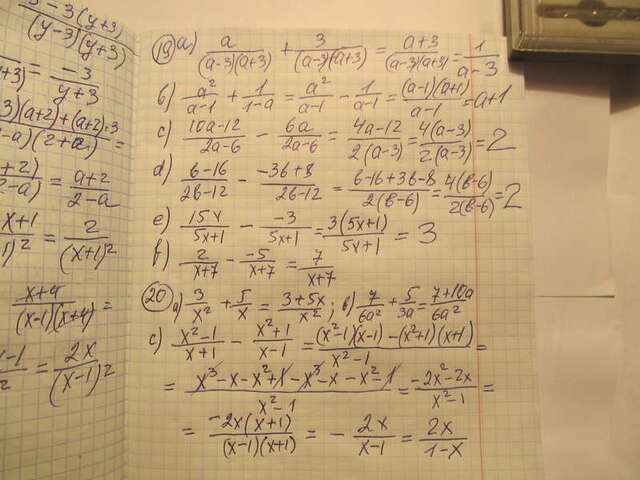 3-3(y+3)
(y-3)(y+3)
= -3/(y+3)
3)(a+2)+(a+2)·3
-a)(2+a) =
+2)/(2-a) = (a+2)/(2-a)
x+1/1)² = 2/(x+1)²
(x+4)/((x-1)(x+4)) =
x-1/2 = 2x/(x-1)²
19 a) a/((a-3)(a+3)) + 3/((a-3)(a+3)) = (a+3)/((a-3)(a+3)) = 1/(a-3)
b) a²/(a-1) + 1/(1-a) = a²/(a-1) - 1/(a-1) = (a-1)(a+1)/(a-1) = a+1
c) (10a-12)/(2a-6) - 6a/(2a-6) = (4a-12)/(2(a-3)) = 4(a-3)/(2(a-3)) = 2
d) (b-16)/(2b-12) - (-3b+8)/(2b-12) = (b-16+3b-8)/(2(b-6)) = 4(b-6)/(2(b-6)) = 2
e) 15x/(5x+1) - (-3)/(5x+1) = 3(5x+1)/(5x+1) = 3
f) 2/(x+7) - (-5)/(x+7) = 7/(x+7)
20 a) 3/x² + 5/x = (3+5x)/x² ; b) 7/6a² + 5/3a = (7+10a)/6a²
c) (x²-1)/(x+1) - (x²+1)/(x-1) = ((x²-1)(x-1)-(x²+1)(x+1))/(x²-1) =
= (x³-x-x²+1-x³-x-x²-1)/(x²-1) = (-2x²-2x)/(x²-1) =
= -2x(x+1)/((x-1)(x+1)) = - 2x/(x-1) = 2x/(1-x)